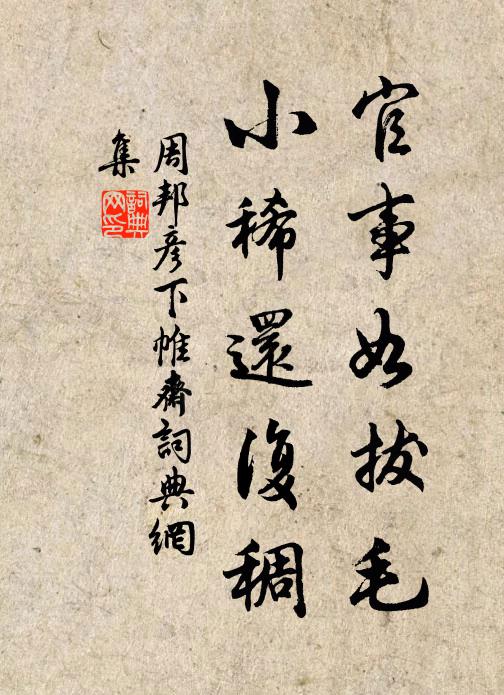 官事如拔毛
小稀還復稠
周邦彦下帷齋詞典網
集
詞典网印